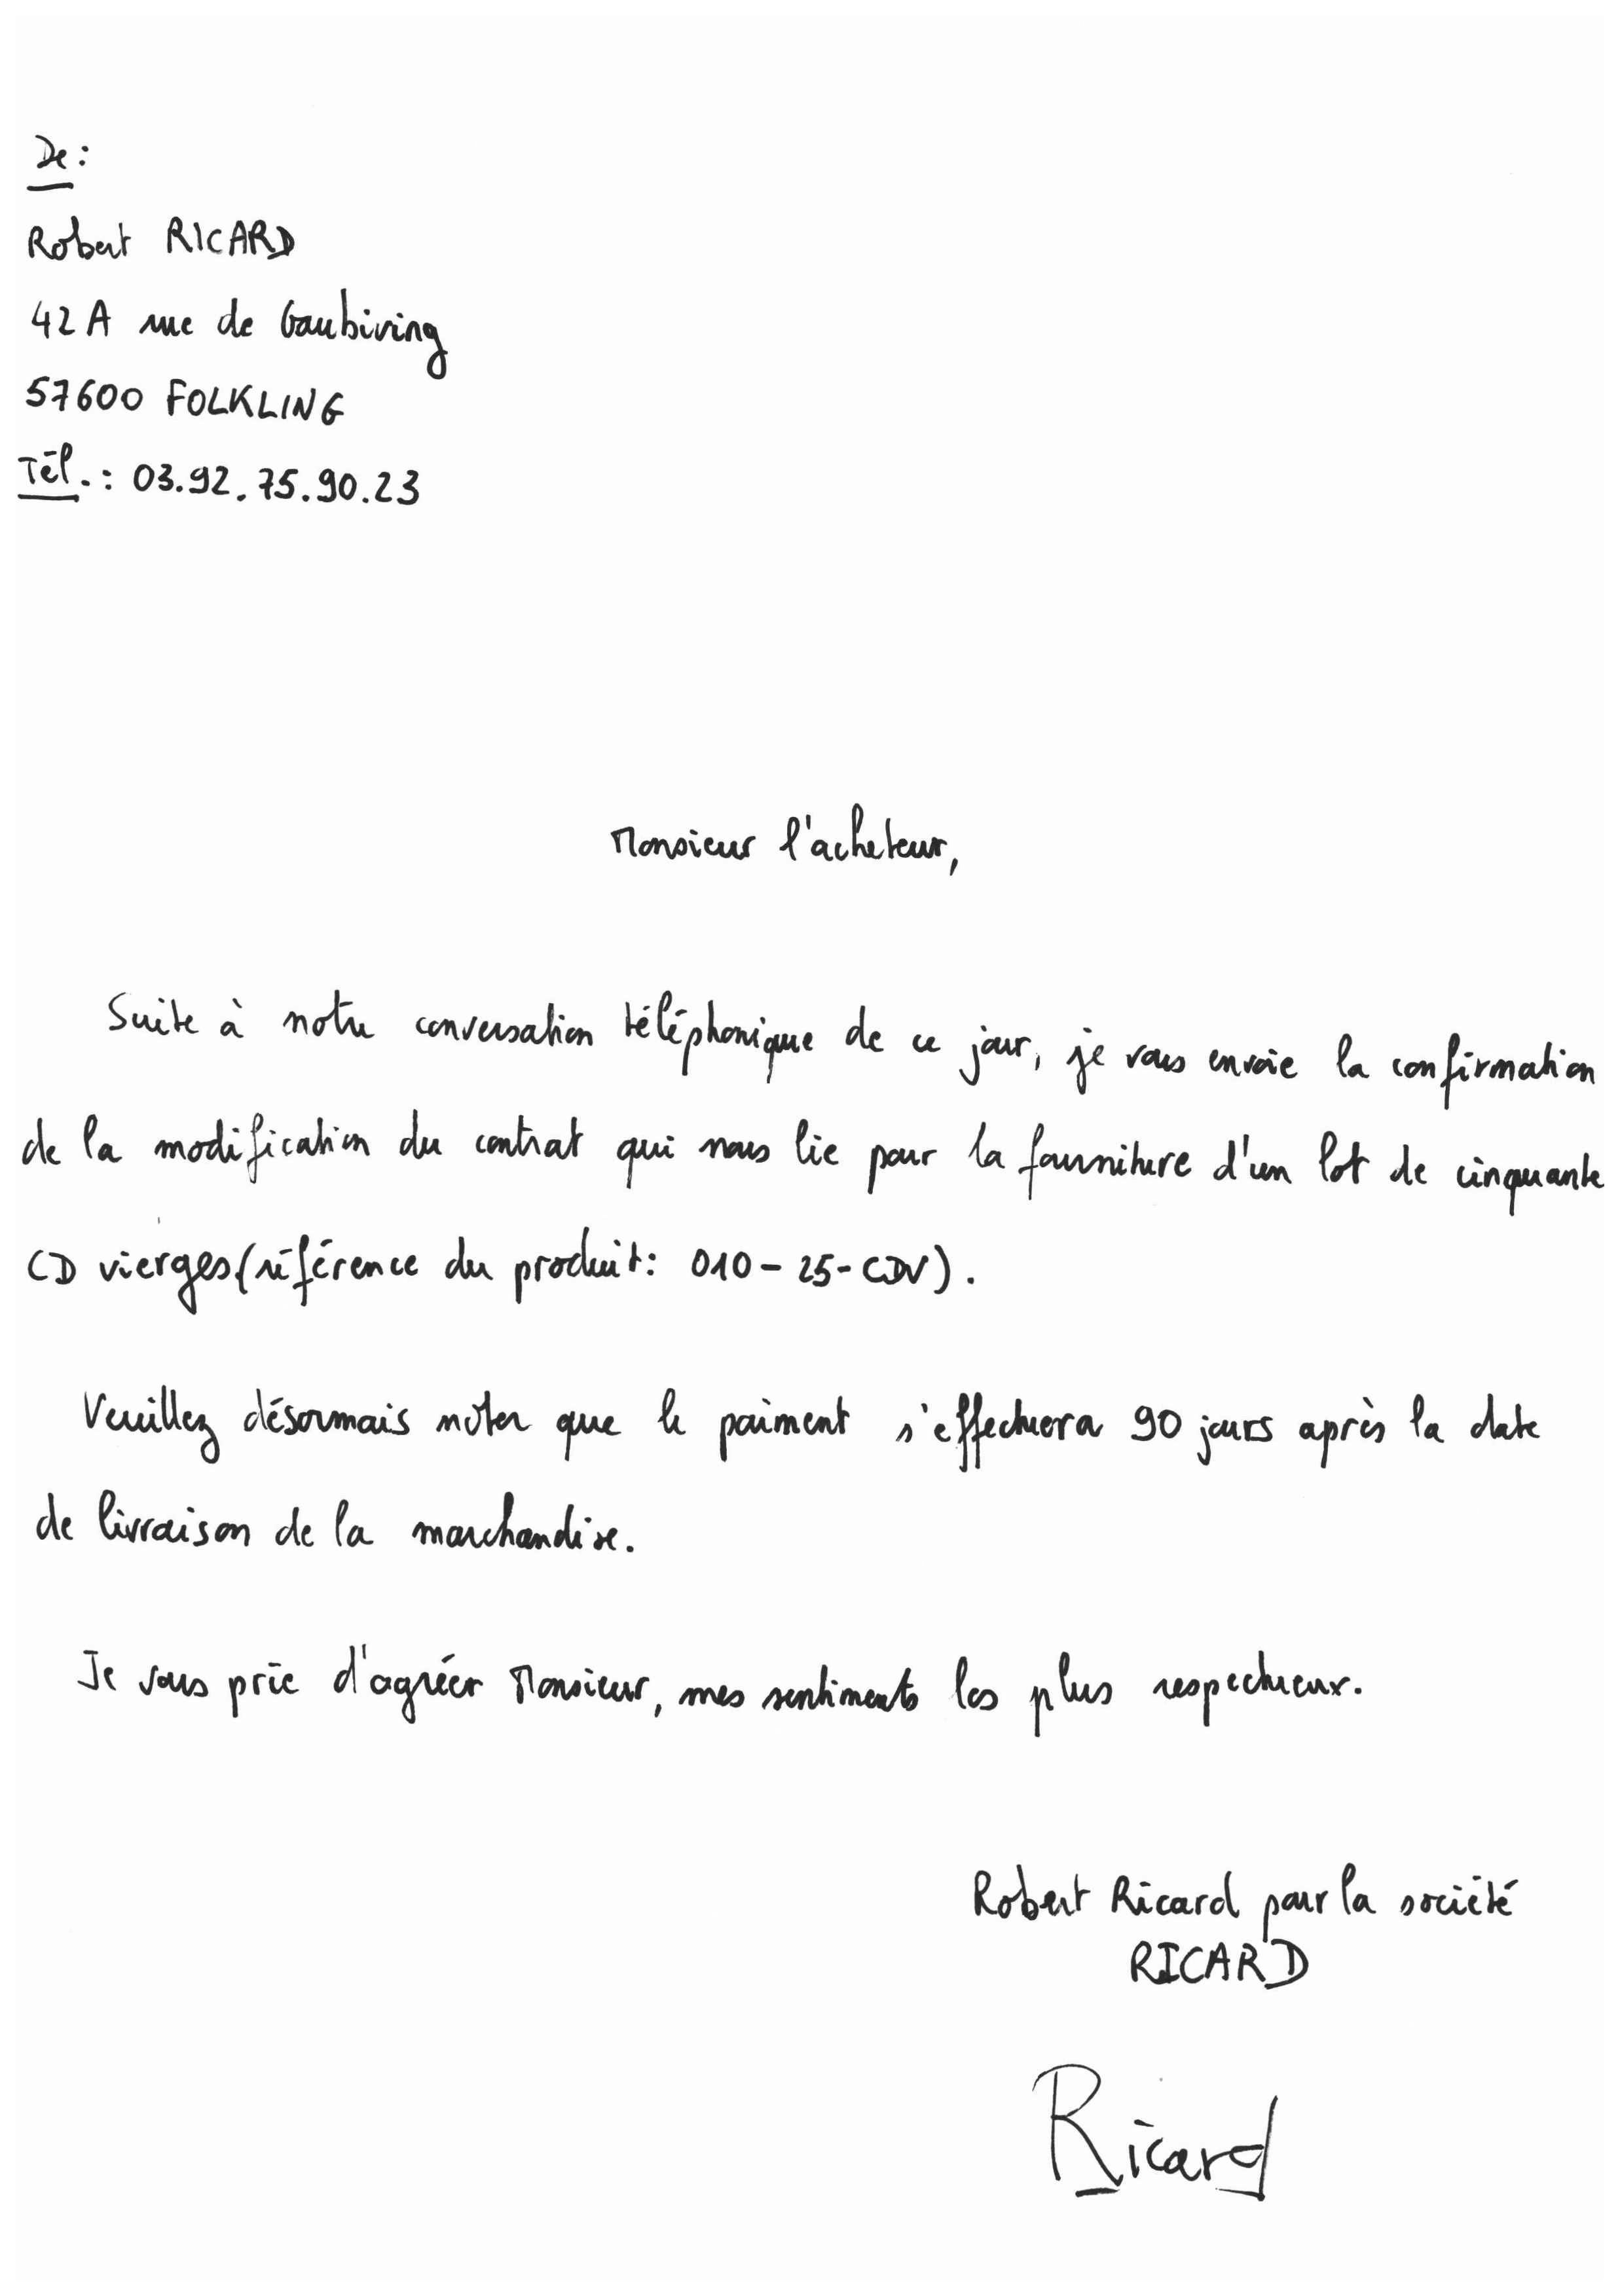 De:
Robert RICARD
42 A rue de Gaubiving
57600 FOLKLING
Tél.: 03.92.75.90.23
Monsieur l'acheteur,
Suite à notre conversation téléphonique de ce jour, je vous envoie la confirmation
de la modification du contrat qui nous lie pour la fourniture d'un lot de cinquante
CD vierges (référence du produit: 010-25-CDV).
Veuillez désormais noter que le paiment s'effectuera 90 jours après la date
de livraison de la marchandise.
Je vous prie d'agréer Monsieur, mes sentiments les plus respectueux.
Robert Ricard pour la société
RICARD
Ricard